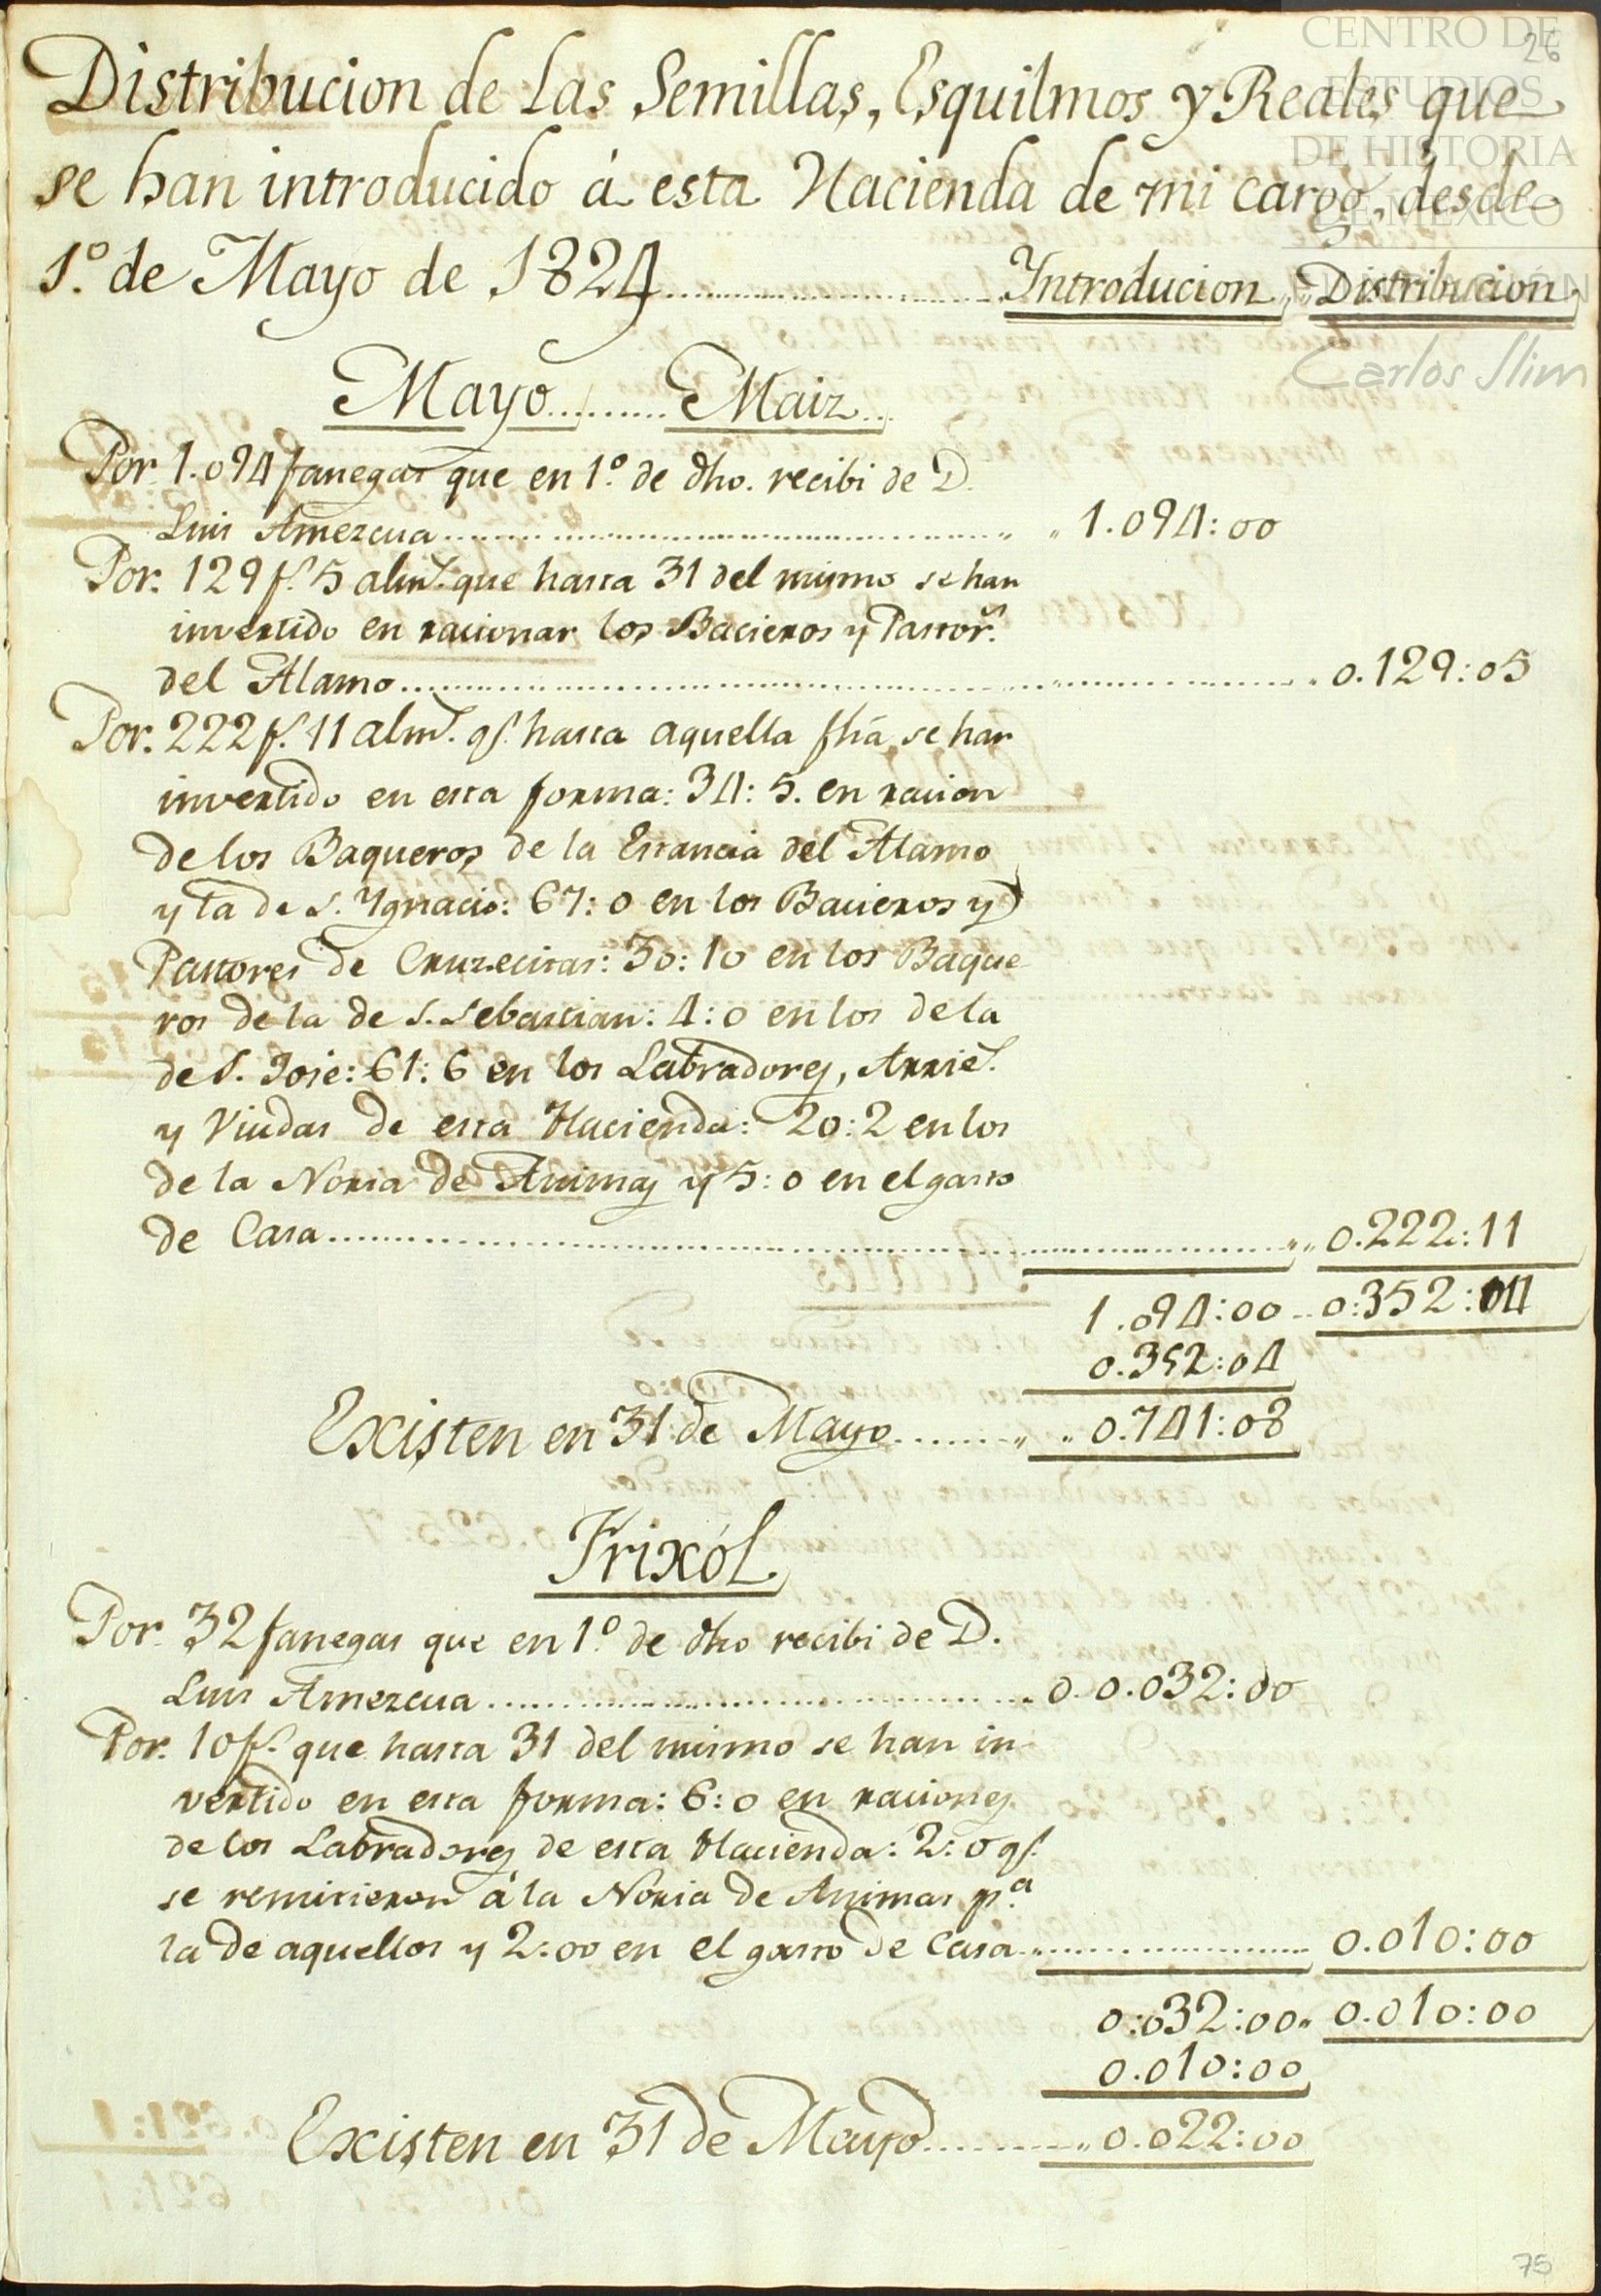 CENTRO DE
ESTUDIOS
DE HISTORIA
DE MÉXICO
FUNDACIÓN
Carlos Slim
26
Distribucion de las Semillas, Esquilmos y Reales que
se han introducido á esta Hacienda de mi cargo, desde
1º. de Mayo de 1824 Introducion Distribucion
Mayo Maiz
Por 1.094 fanegas que en 1º. de dho. recibi de D.
Luis Amezcua 1.094:00
Por. 129 f.s 5 alm.s que hasta 31 del mismo se han
invertido en racionar los Bacieros y Pastor.s
del Alamo 0.129:05
Por. 222 f.s 11 alm.s q.e hasta aquella fhá se han
invertido en esta forma: 34:5. en racion
de los Baqueros de la Estancia del Alamo
y la de S. Ygnacio: 67:0 en los Bacieros y
Pastores de Cruzecitas: 30:10 en los Baque
ros de la de S. Sebastian: 4:0 en los de la
de S. Jose: 61:6 en los Labradores, Arrie.s
y Viudas de esta Hacienda: 20:2 en los
de la Noria de Animas y 5:0 en el gasto
de Casa 0.222:11
1.094:00 0:352:04
0.352:04
Existen en 31 de Mayo 0.741:08
Frixól
Por 32 fanegas que en 1º. de dho recibi de D.
Luis Amezcua 0.0.032:00
Por. 10 f.s que hasta 31 del mismo se han in
vertido en esta forma: 6:0 en raciones
de los Labradores de esta Hacienda: 2:0 q.e
se remitieron á la Noria de Animas p.a
la de aquellos y 2:00 en el gasto de Casa 0.010:00
0:032:00 0.010:00
0.010:00
Existen en 31 de Mayo 0.022:00
75